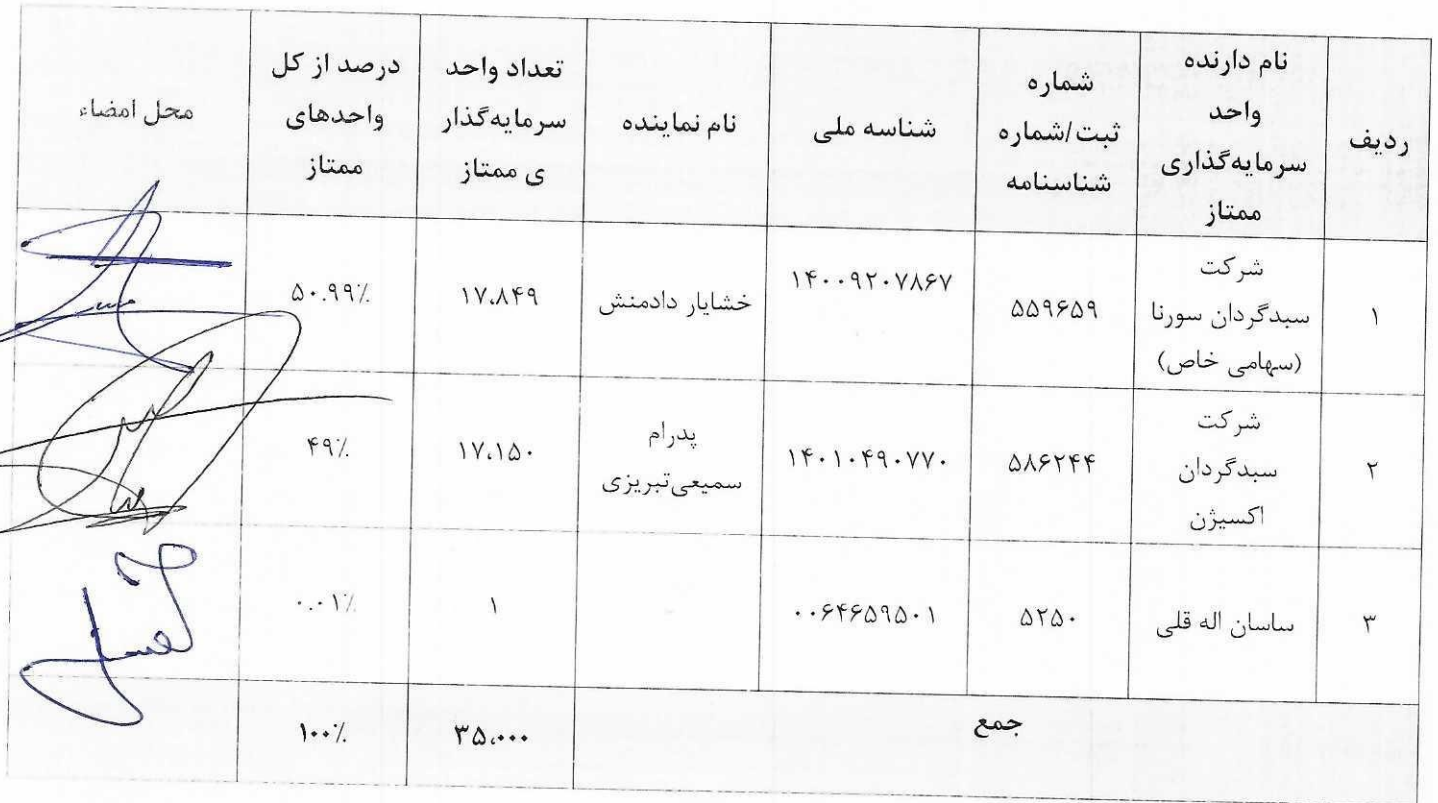 ردیف
نام دارنده
واحد
سرمایه‌گذاری
ممتاز
شماره
ثبت/شماره
شناسنامه
شناسه ملی
نام نماینده
تعداد واحد
سرمایه‌گذار
ی ممتاز
درصد از کل
واحدهای
ممتاز
محل امضاء
۱
شرکت
سبدگردان سورنا
(سهامی خاص)
۵۵۹۶۵۹
۱۴۰۰۹۲۰۷۸۶۷
خشایار دادمنش
۱۷،۸۴۹
۵۰.۹۹٪
۲
شرکت
سبدگردان
اکسیژن
۵۸۶۲۴۴
۱۴۰۱۰۴۹۰۷۷۰
پدرام
سمیعی‌تبریزی
۱۷،۱۵۰
۴۹٪
۳
ساسان اله قلی
۵۲۵۰
۰۰۶۴۶۵۹۵۰۱
۱
۰.۰۱٪
جمع
۳۵،۰۰۰
۱۰۰٪